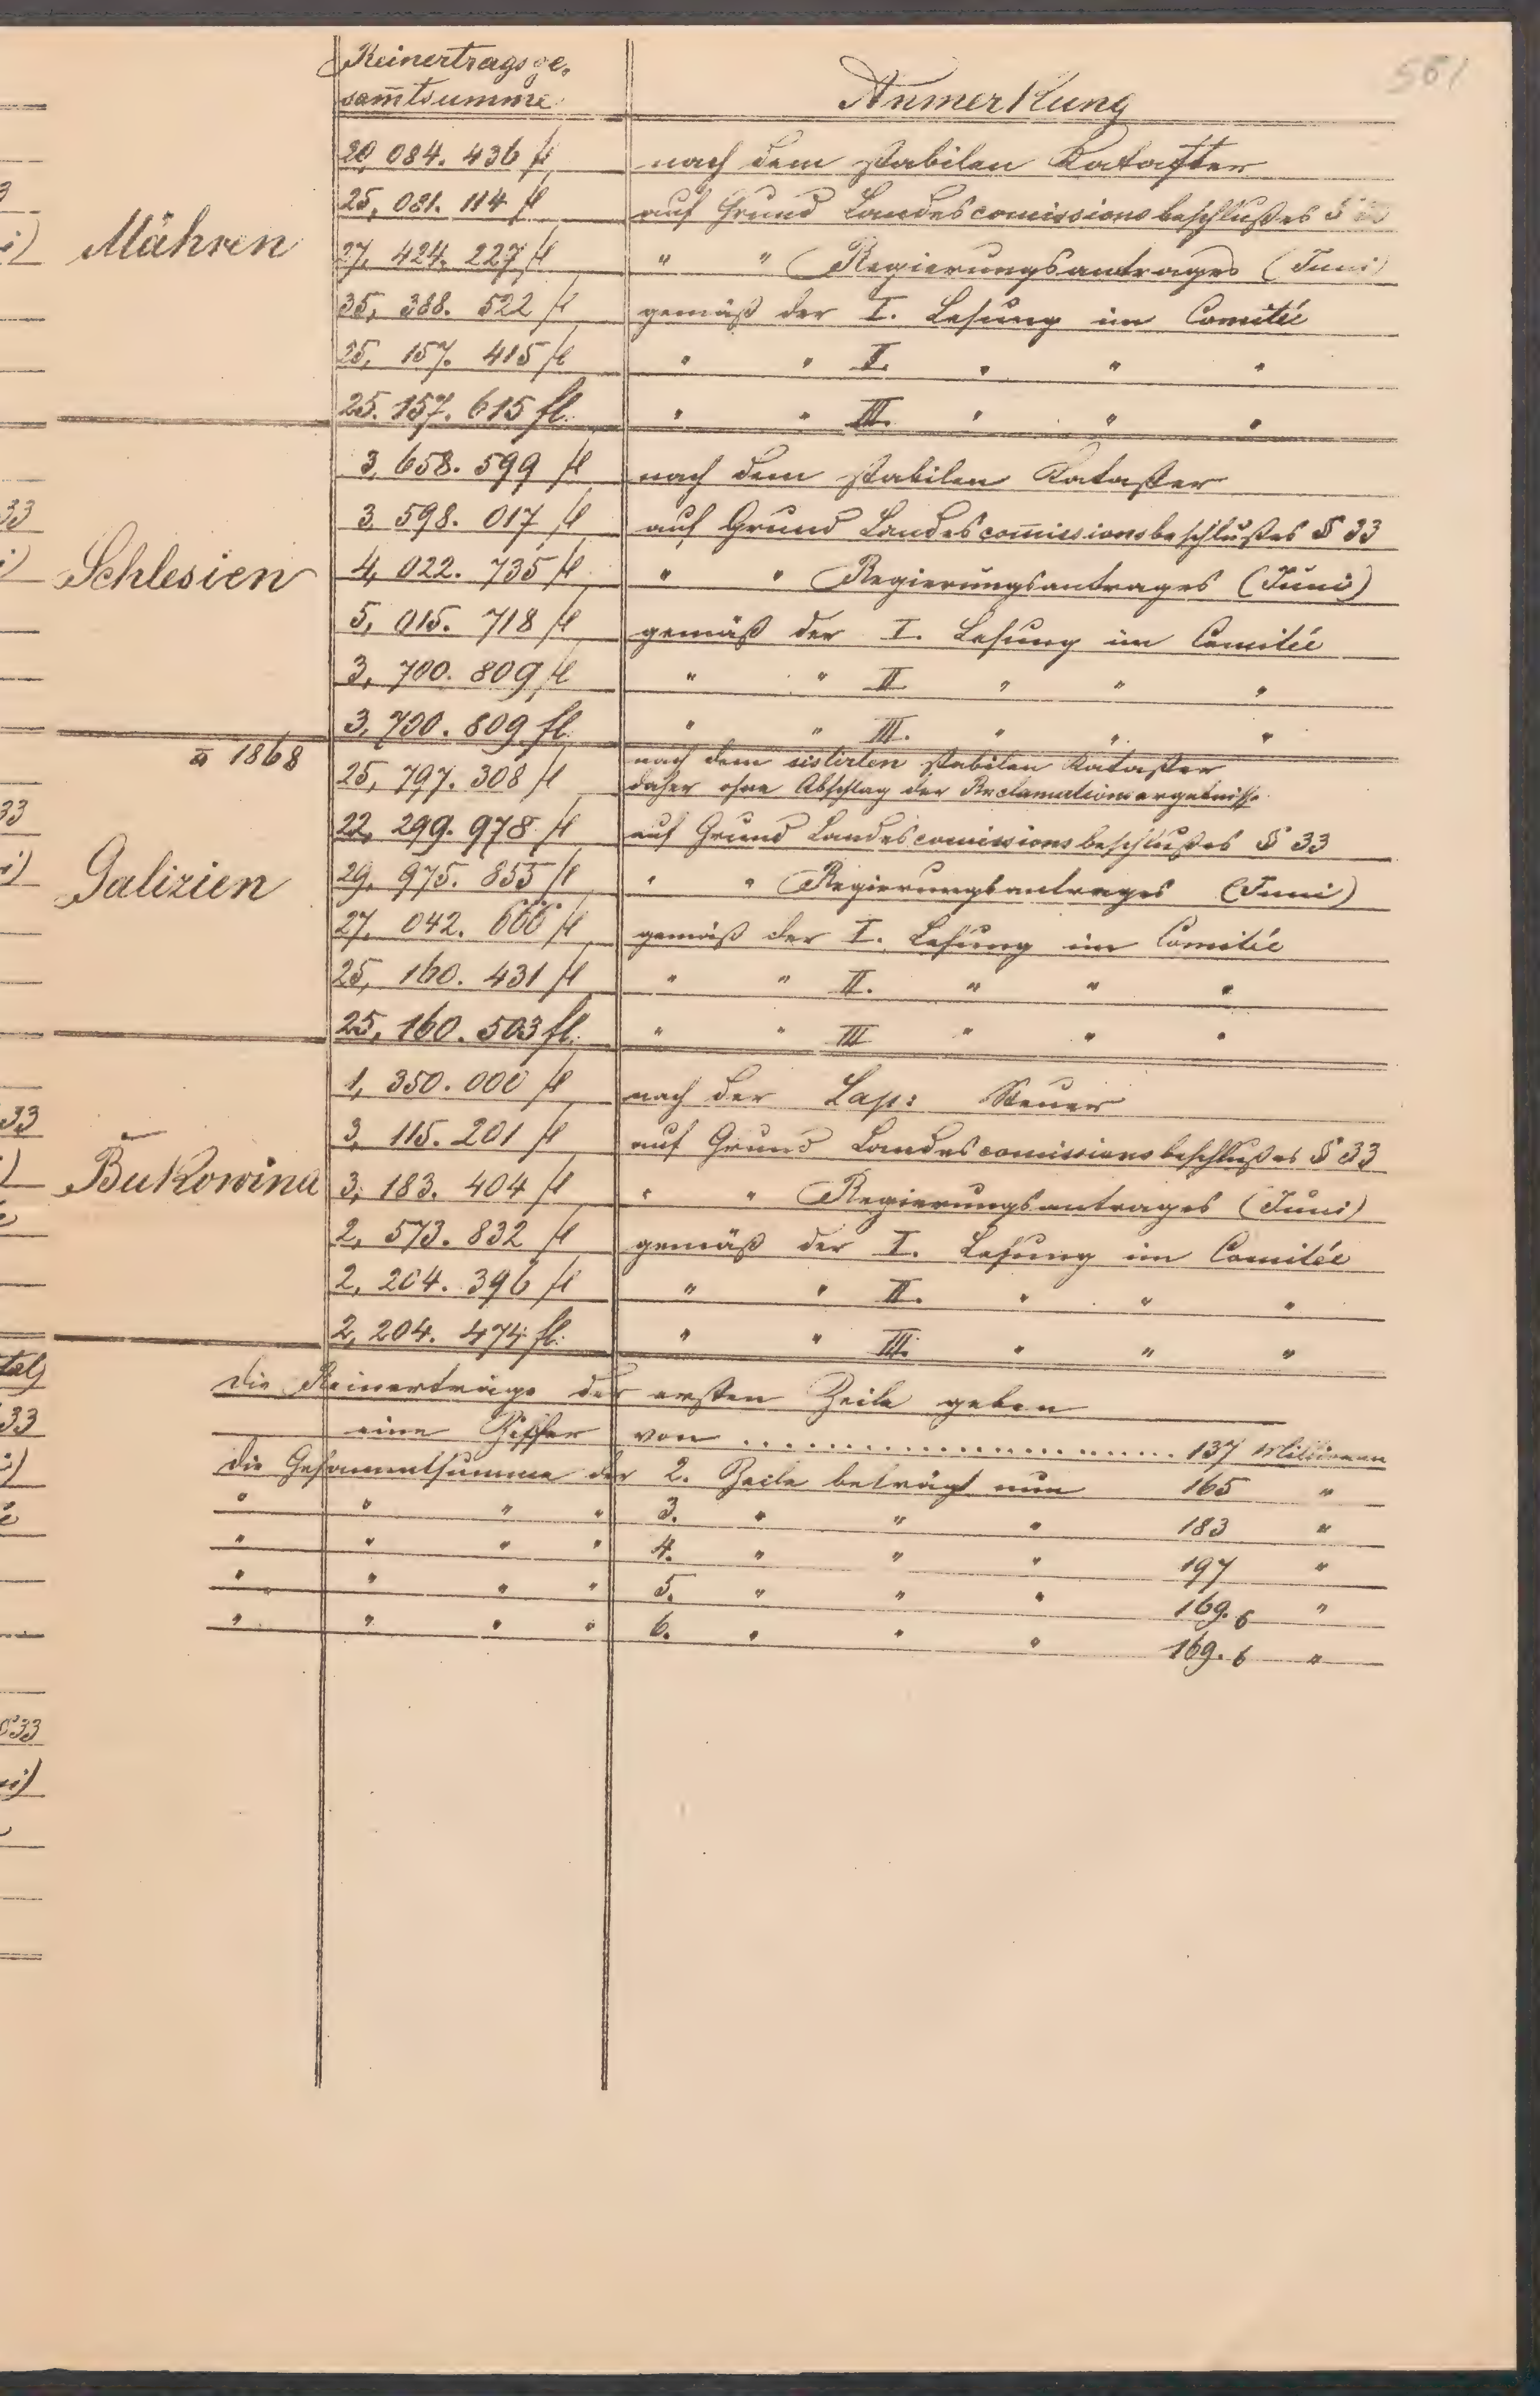 561
Reinertragsge-
sam̄tsumme
Anmerkung
20,084.436 fl nach dem stabilen Kataster
25,081.114 fl auf Grund Landescomissionsbeschlußes §
Mähren
27,424.227 fl " " Regierungsantrages (Juni)
35,388.522 fl gemäß der I. Lesung im Comitée
25,157.415 fl " " II. " " "
25.157.615 fl. " " III. " " "
3,658.599 fl nach dem stabilen Kataster
3,598.017 fl auf Grund Landescom̄issionsbeschlußes § 33
Schlesien
4,022.735 fl " " Regierungsantrages (Juni)
5,015.718 fl gemäß der I. Lesung im Comitée
3,700.809 fl " " II. " " "
3,700.809 fl. " " III. " " "
1868
25,797.308 fl nach dem sistirten stabilen Kataster
daher ohne Abschlag der Reclamationsergebnisse
22,299.978 fl auf Grund Landescomissionsbeschlußes § 33
Galizien
29,975.855 fl " " Regierungsantrages (Juni)
27,042.666 fl gemäß der I. Lesung im Comitée
25,160.431 fl " " II. " " "
25,160.503 fl. " " III " " "
1,350.000 fl nach der Steuer
3,115.201 fl auf Grund Landescomissionsbeschlußes § 33
Bukowina
3,183.404 fl " " Regierungsantrages (Juni)
2,573.832 fl gemäß der I. Lesung im Comitée
2,204.396 fl " " II. " " "
2,204.474 fl. " " III. " " "
Die Reinerträge der ersten Zeile geben
eine Ziffer von ........................ 137 Millionen
Die Gesammtsumme der 2. Zeile beträgt nun 165 "
" " " " 3. " " " 183 "
" " " " 4. " " " 197 "
" " " " 5. " " " 169.6 "
" " " " 6. " " " 169.6 "